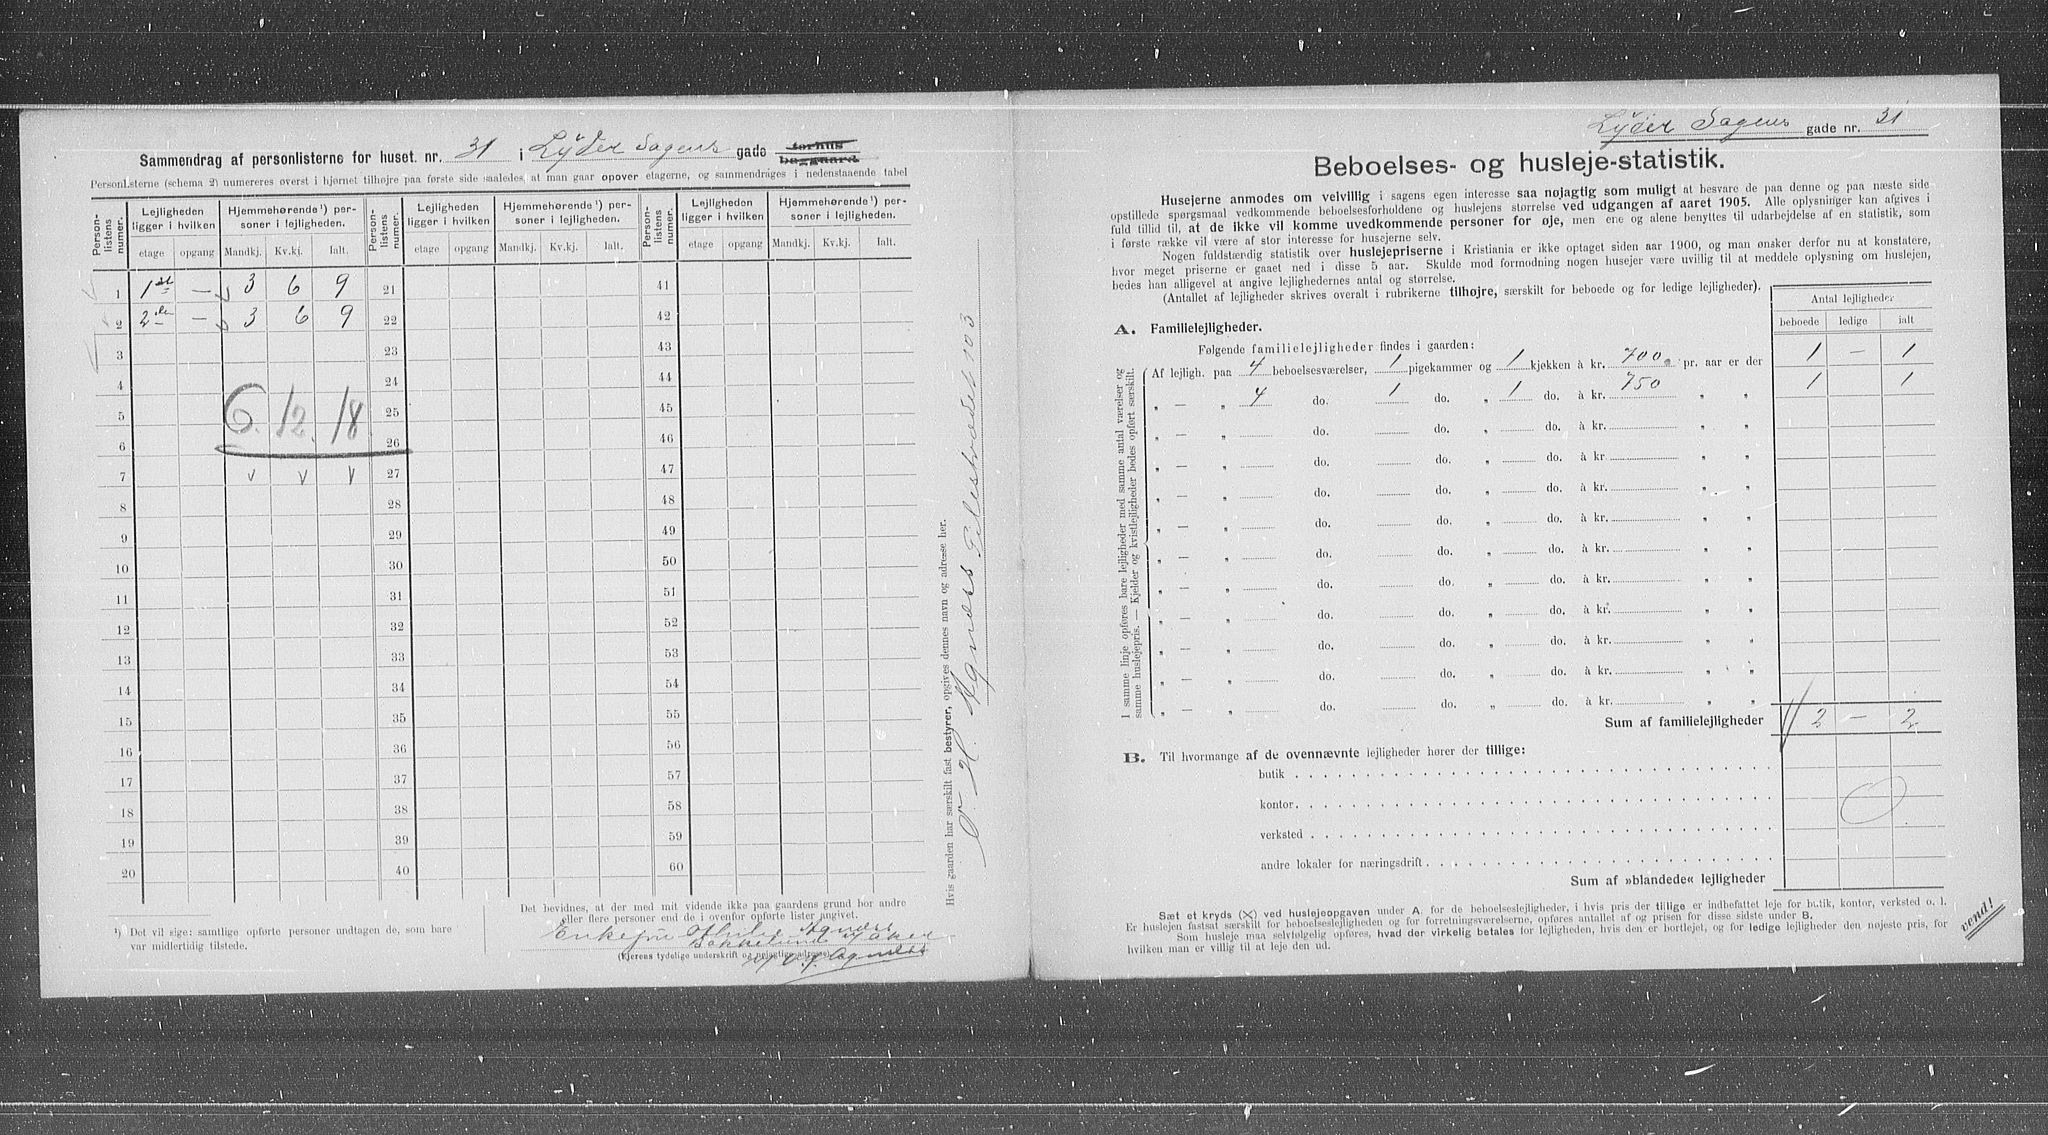 Sammendrag af personlisterne for huset. nr. 31 i Lyder Sagens gade forhus baggaard.
Personlisterne (schema 2) numereres øverst i hjørnet tilhøjre paa første side saaledes, at man gaar opover etagerne, og sammendrages i nedenstaaende tabel
Person-listens numer. Lejligheden ligger i hvilken Hjemmehørende¹) personer i lejligheden. Person-listens numer. Lejligheden ligger i hvilken Hjemmehørende¹) personer i lejligheden. Person-listens numer. Lejligheden ligger i hvilken Hjemmehørende¹) personer i lejligheden.
etage opgang Mandkj. Kv.kj. Ialt. etage opgang Mandkj. Kv.kj. Ialt. etage opgang Mandkj. Kv.kj. Ialt.
1 1ste — v 3 6 9 21 41
2 2den — v 3 6 9 22 42
3 23 43
4 24 44
5 6. 12. 18. 25 45
6 26 46
7 v v v 27 47
8 28 48
9 29 49
10 30 50
11 31 51
12 32 52
13 33 53
14 34 54
15 35 55
16 36 56
17 37 57
18 38 58
19 39 59
20 40 60
¹) Det vil sige: samtlige opførte personer undtagen de, som bare
var midlertidig tilstede.
Det bevidnes, at der med mit vidende ikke paa gaardens grund bor andre
eller flere personer end de i ovenfor opførte lister angivet.
Enkefru
(Ejerens tydelige underskrift og nøjagtige adresse)
Hvis gaarden har særskilt fast bestyrer, opgives dennes navn og adresse her.
Agnæss Pilestrædet 103
Lyder Sagens gade nr. 31
Beboelses- og husleje-statistik.
Husejerne anmodes om velvillig i sagens egen interesse saa nøjagtig som muligt at besvare de paa denne og paa næste side
opstillede spørgsmaal vedkommende beboelsesforholdene og huslejens størrelse ved udgangen af aaret 1905. Alle oplysninger kan afgives i
fuld tillid til, at de ikke vil komme uvedkommende personer for øje, men ene og alene benyttes til udarbejdelse af en statistik, som
i første række vil være af stor interesse for husejerne selv.
Nogen fuldstændig statistik over huslejepriserne i Kristiania er ikke optaget siden aar 1900, og man ønsker derfor nu at konstatere,
hvor meget priserne er gaaet ned i disse 5 aar. Skulde mod formodning nogen husejer være uvillig til at meddele oplysning om huslejen,
bedes han alligevel at angive lejlighedernes antal og størrelse.
(Antallet af lejligheder skrives overalt i rubrikerne tilhøjre, særskilt for beboede og for ledige lejligheder).
Antal lejligheder
beboede ledige ialt
A. Familielejligheder.
Følgende familielejligheder findes i gaarden:
Af lejligh. paa 4 beboelsesværelser, 1 pigekammer og 1 kjøkken à kr. 700 pr. aar er der 1 — 1
„ — „ 4 do. 1 do. „ 1 do. à kr. 750 „ „ 1 1
„ — „ do. do. „ do. à kr. „ „
„ — „ do. do. „ do. à kr. „ „
„ — „ do. do. „ do. à kr. „ „
„ — „ do. do. „ do. à kr. „ „
„ — „ do. do. „ do. à kr. „ „
„ — „ do. do. „ do. à kr. „ „
„ — „ do. do. „ do. à kr. „ „
„ — „ do. do. „ do. à kr. „ „
„ — „ do. do. „ do. à kr. „ „
„ — „ do. do. „ do. à kr. „ „
I samme linje opføres bare lejligheder med samme antal værelser og
samme huslejepris. — Kjelder og kvistlejligheder bedes opført særskilt.
Sum af familielejligheder 2 — 2
B. Til hvormange af de ovennævnte lejligheder hører der tillige:
butik
kontor
verksted
andre lokaler for næringsdrift
Sum af »blandede« lejligheder
Sæt et kryds (X) ved huslejeopgaven under A. for de beboelseslejligheder, i hvis pris der tillige er indbefattet leje for butik, kontor, verksted o. l.
Er huslejen fastsat særskilt for beboelseslejligheden og for forretningsværelserne, opføres antallet af og prisen for disse sidste under B.
Som husleje maa selvfølgelig opføres, hvad der virkelig betales for lejligheden, hvis den er bortlejet, og for ledige lejligheder den nøjeste pris, for
hvilken man er villig til at leje den ud.
vend!